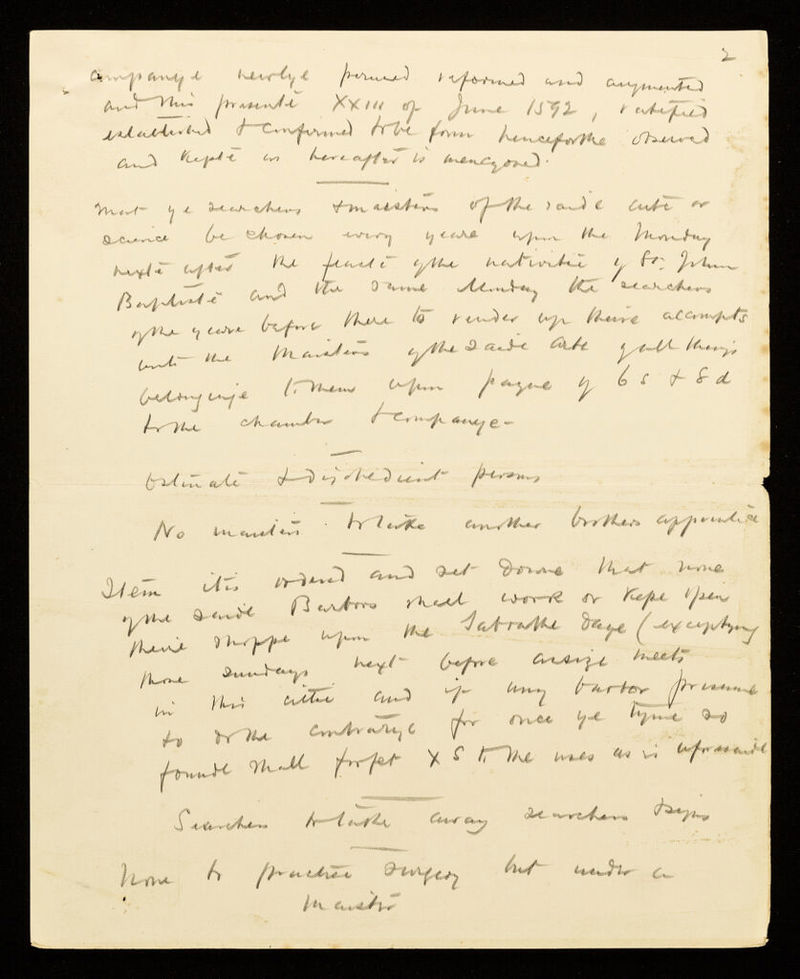 2
Companye newlye perused reformed and augmented
and this presente XXIII of June 1592, ratefied
established & confirmed to be from henceforthe observed
and kepte as hereafter is mencyoned.
That ye searchers & maisters of the saide arte or
science be chosen every yeare upon the Monday
nexte after the feaste of the nativitie of St. John
Baptiste and the same Monday the searchers
of the yeare before there to render up theire accompts
unto the Maisters of the saide Arte of all things
belonginge to them upon payne of 6 s & 8 d
to the chamber & companye -
Ostinate & disobedient persons
No maisters to take another brothers apprentice
Item itis ordered and set downe that none
of the saide Barbors shall work or kepe open
theire shoppe upon the Sabaothe daye (exceptyng
those sundays next before assize meets
in this cittie and if any barbor presume
to do the contrarye for once ye tyme so
founde shall forfet X S to the uses as is aforesaide
Searchers to take away searchers signs
None to practise surgery but under a
Maister